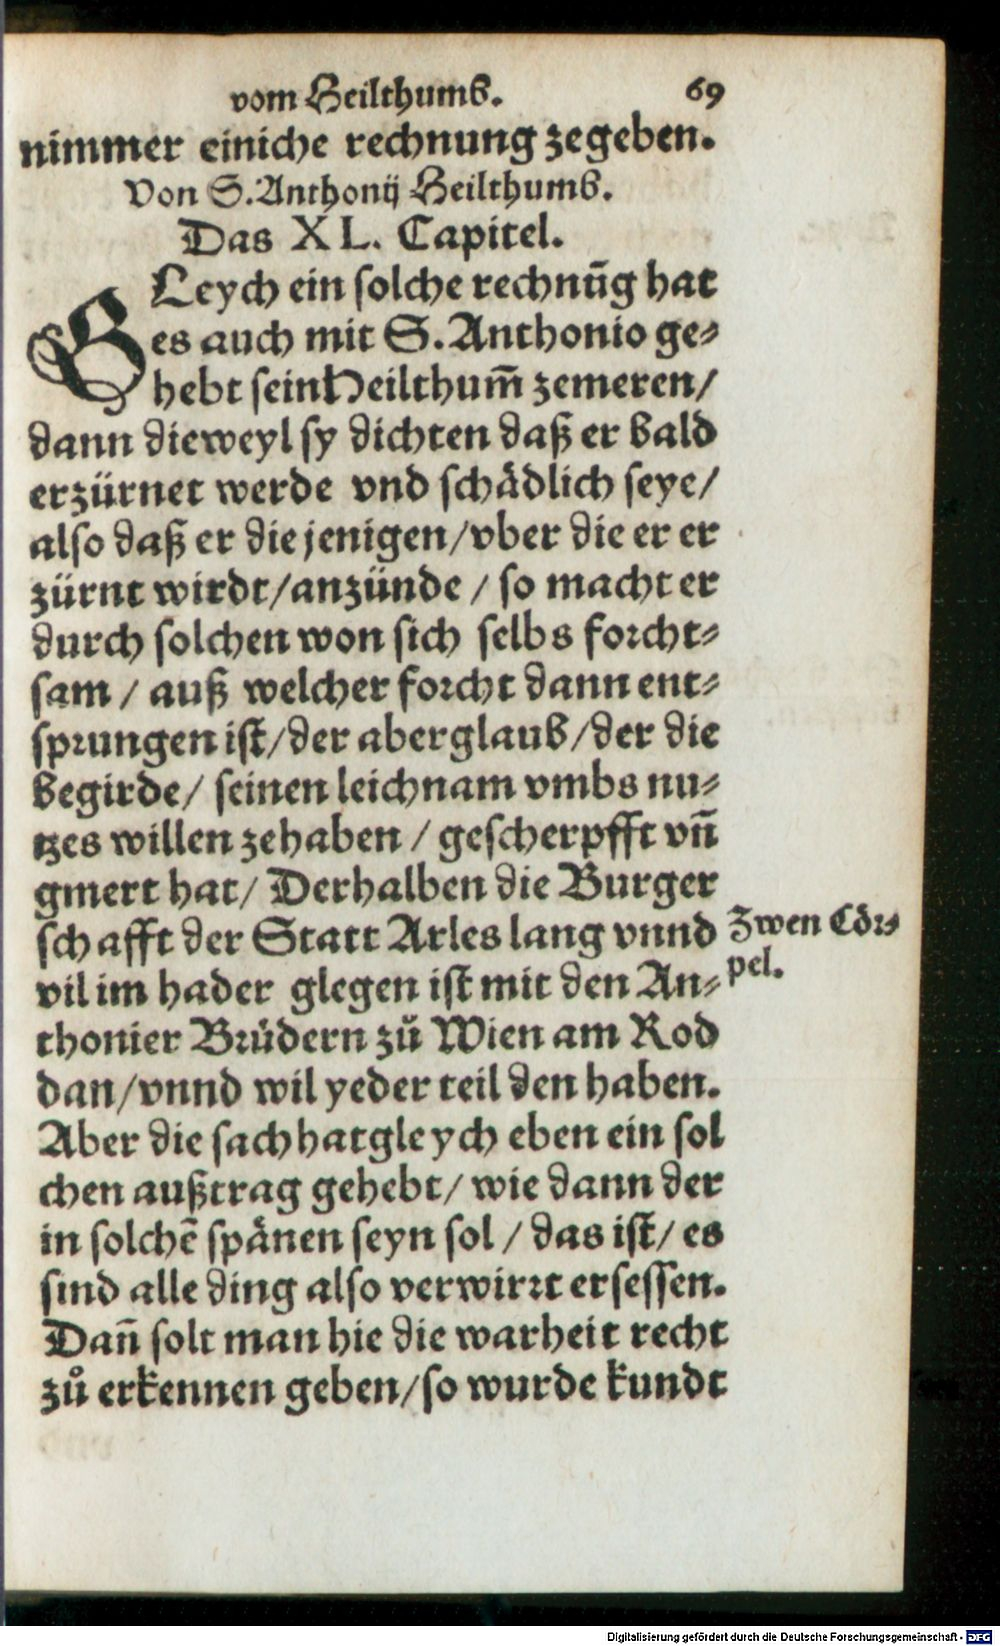 vom Heilthumb. 69
nimmer einiche rechnung zegeben.
Von S. Anthonij Heilthumb.
Das XL. Capitel.
GLeych ein solche rechnūg hat
es auch mit S. Anthonio ge⸗
hebt sein Heilthum̄ zemeren/
dann dieweyl sy dichten daß er bald
erzürnet werde vnd schådlich seye/
also daß er die jenigen/vber die er er
zürnt wirdt/anzünde / so macht er
durch solchen won sich selbs forcht⸗
sam / auß welcher forcht dann ent⸗
sprungen ist/der aberglaub/der die
begirde/ seinen leichnam vmbs nu⸗
tzes willen zehaben / gescherpfft vn̄
gmert hat/ Derhalben die Burger
schafft der Statt Arles lang vnnd
vil im hader glegen ist mit den An⸗
thonier Brüdern zů Wien am Rod
dan/vnnd wil yeder teil den haben.
Aber die sach hat gleych eben ein sol
chen außtrag gehebt/ wie dann der
in solchē spånen seyn sol / das ist/ es
sind alle ding also verwirrt ersessen.
Dañ solt man hie die warheit recht
zů erkennen geben/so wurde kundt
Zwen Cör⸗
pel.
Digitalisierung gefördert durch die Deutsche Forschungsgemeinschaft - DFG